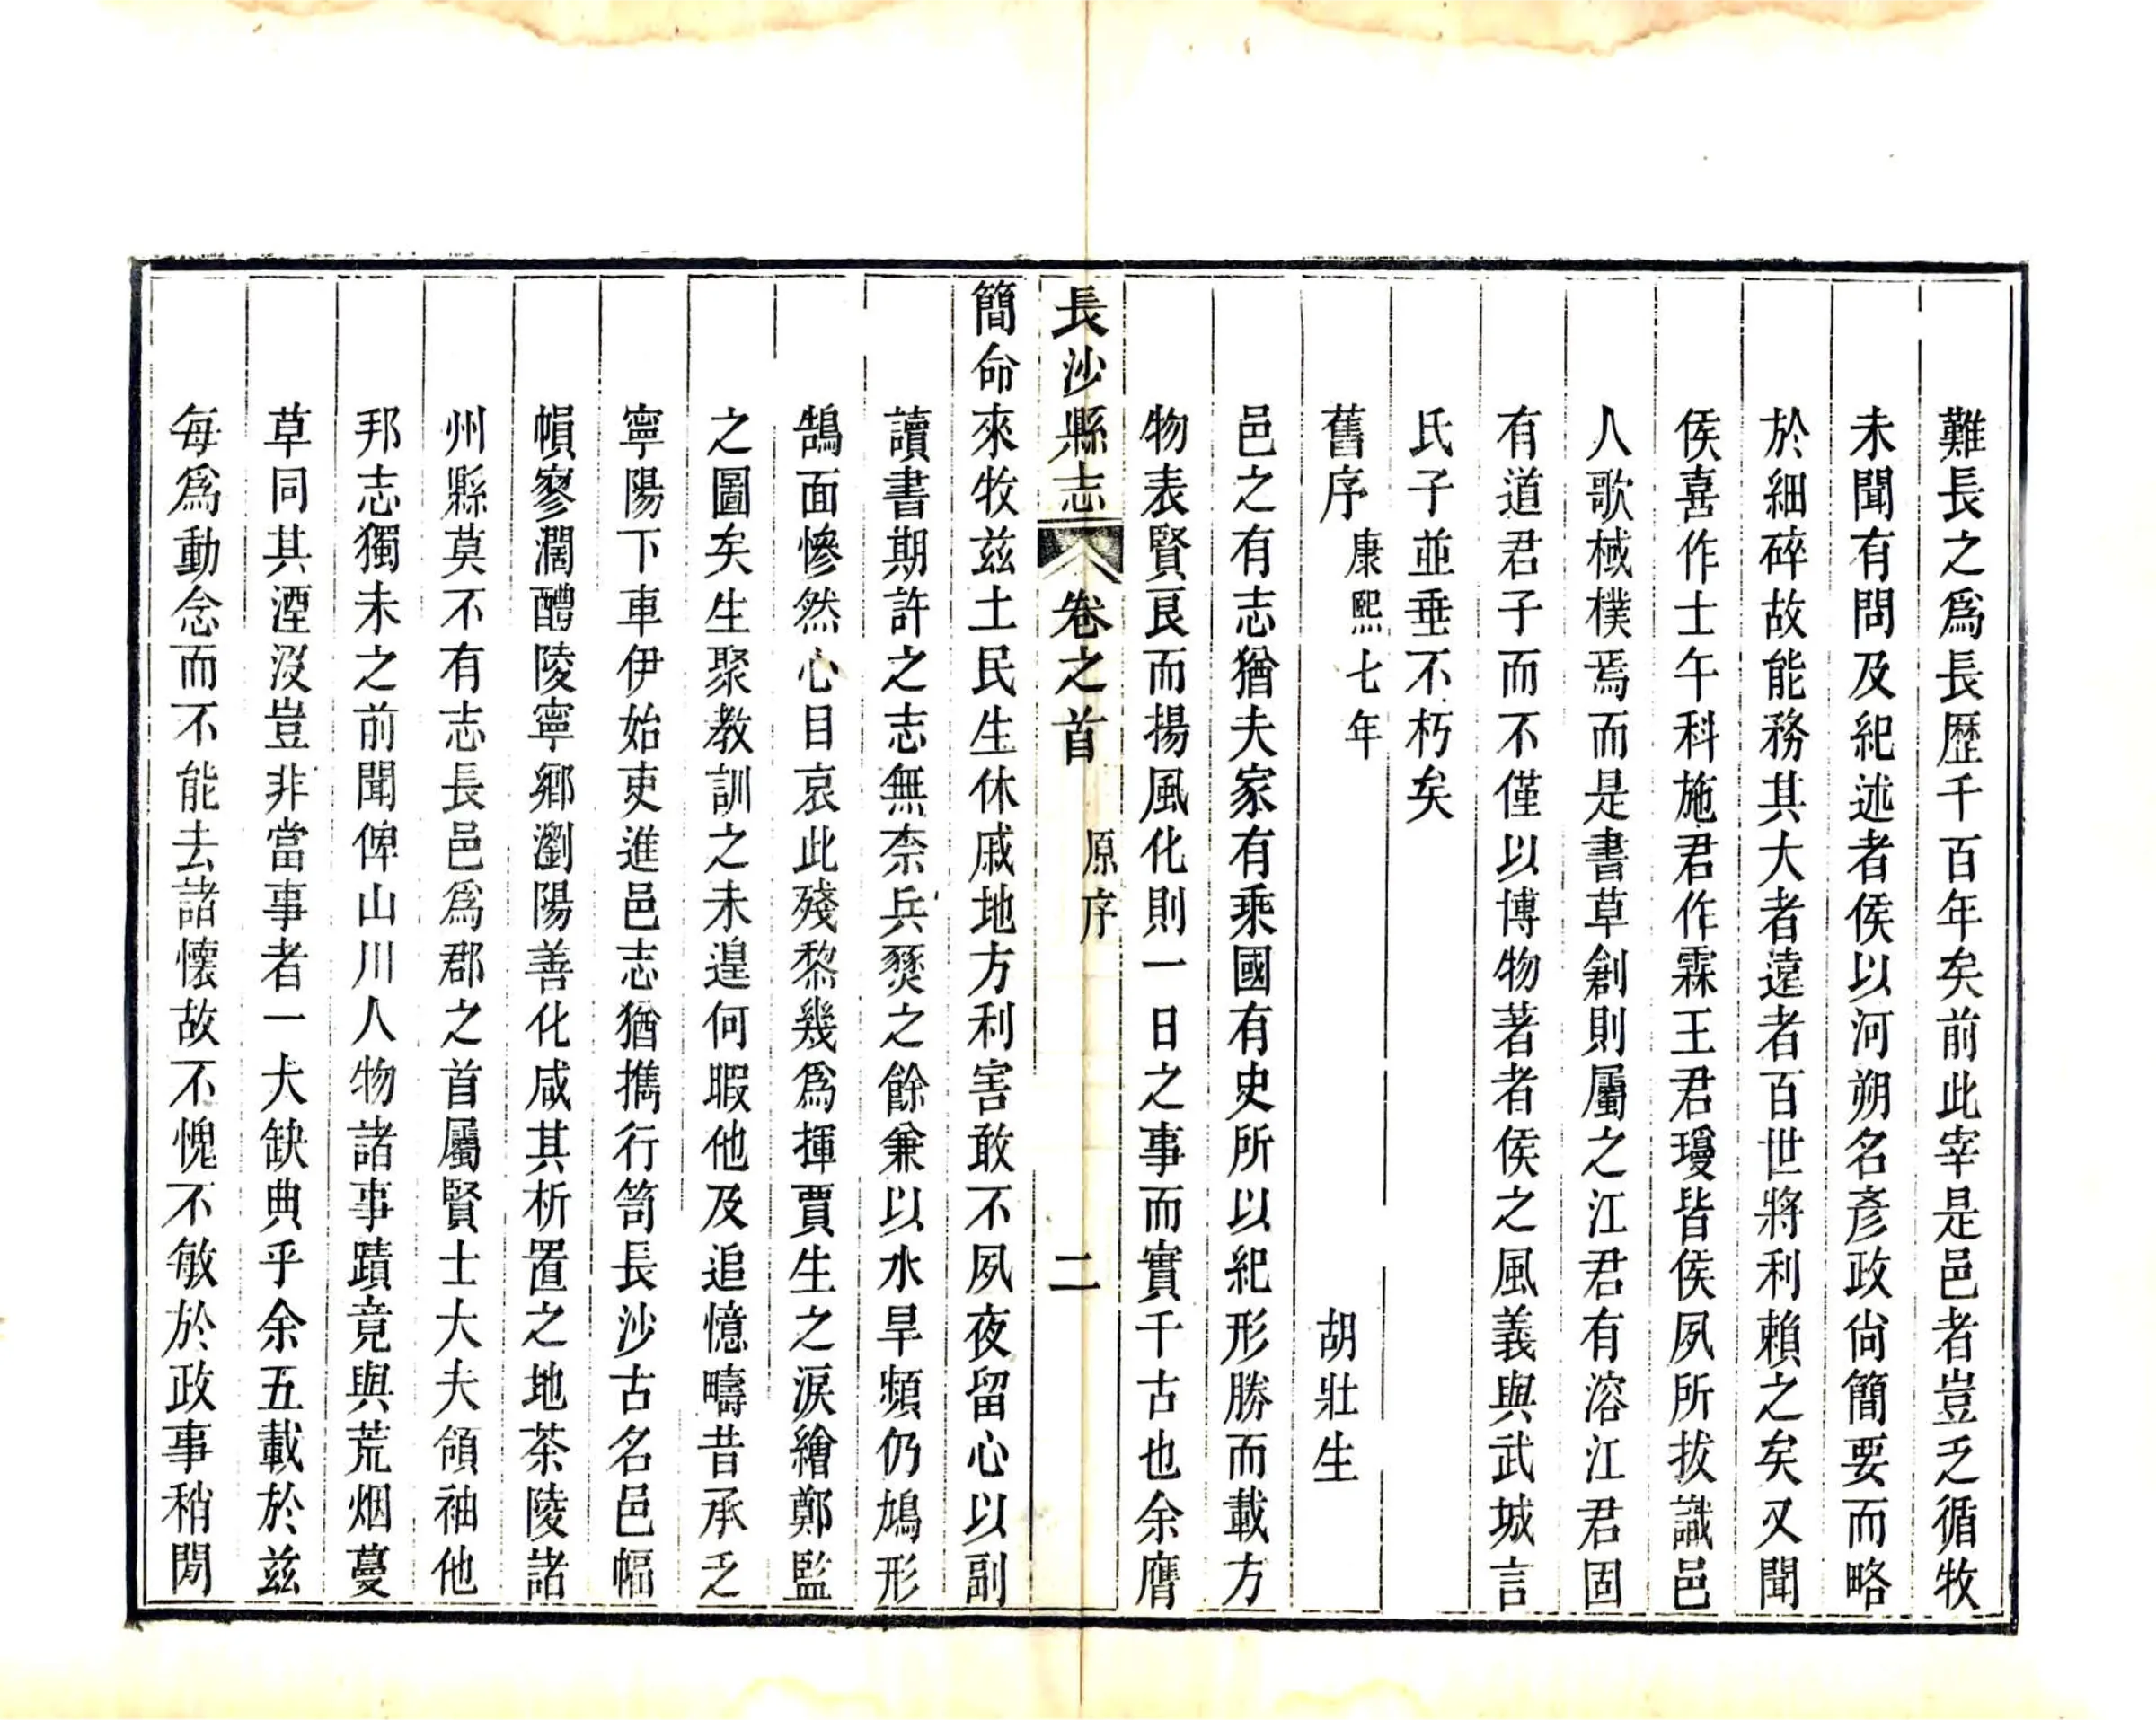 難長之爲長歷千百年矣前此宰是邑者豈乏循牧
未聞有問及紀述者侯以河朔名彥政尙簡要而略
於細碎故能務其大者遠者百世將利賴之矣又聞
侯喜作士午科施君作霖王君瓊皆侯夙所拔識邑
人歌棫樸焉而是書草創則屬之江君有溶江君固
有道君子而不僅以博物著者侯之風義與武城言
氏子並垂不朽矣
舊序 康熙七年 胡壯生
邑之有志猶夫家有乘國有史所以紀形勝而載方
物表賢良而揚風化則一日之事而實千古也余膺
長沙縣志 卷之首 原序 二
簡命來牧兹土民生休戚地方利害敢不夙夜留心以副
讀書期許之志無柰兵燹之餘兼以水旱頻仍鳩形
鵠面慘然心目哀此殘黎幾爲揮賈生之淚繪鄭監
之圖矣生聚教訓之未遑何暇他及追憶疇昔承乏
寧陽下車伊始吏進邑志猶攜行笥長沙古名邑幅
幀寥濶醴陵寧鄉瀏陽善化咸其析置之地茶陵諸
州縣莫不有志長邑爲郡之首屬賢士大夫領袖他
邦志獨未之前聞俾山川人物諸事蹟竟與荒烟蔓
草同其湮没豈非當事者一大缺典乎余五載於兹
每爲動念而不能去諸懷故不愧不敏於政事稍閒